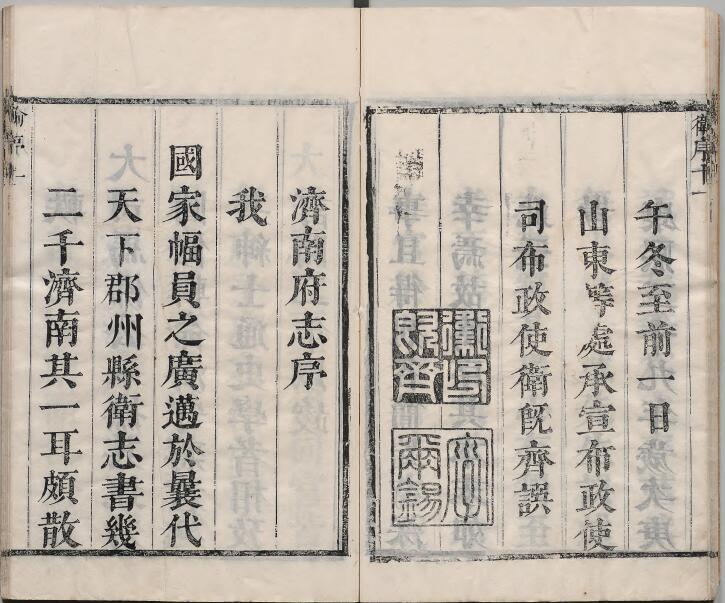 午冬至前一日
山東等處承宣布政使
司布政使衛旣齊譔
衛印旣齊
字爾錫
濟南府志序
我
國家幅員之廣邁於曩代
天下郡州縣衛志書幾
二千濟南其一耳頗散